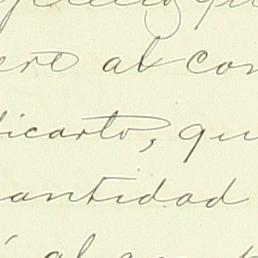 ere al con
licarto, qu
antidad
al